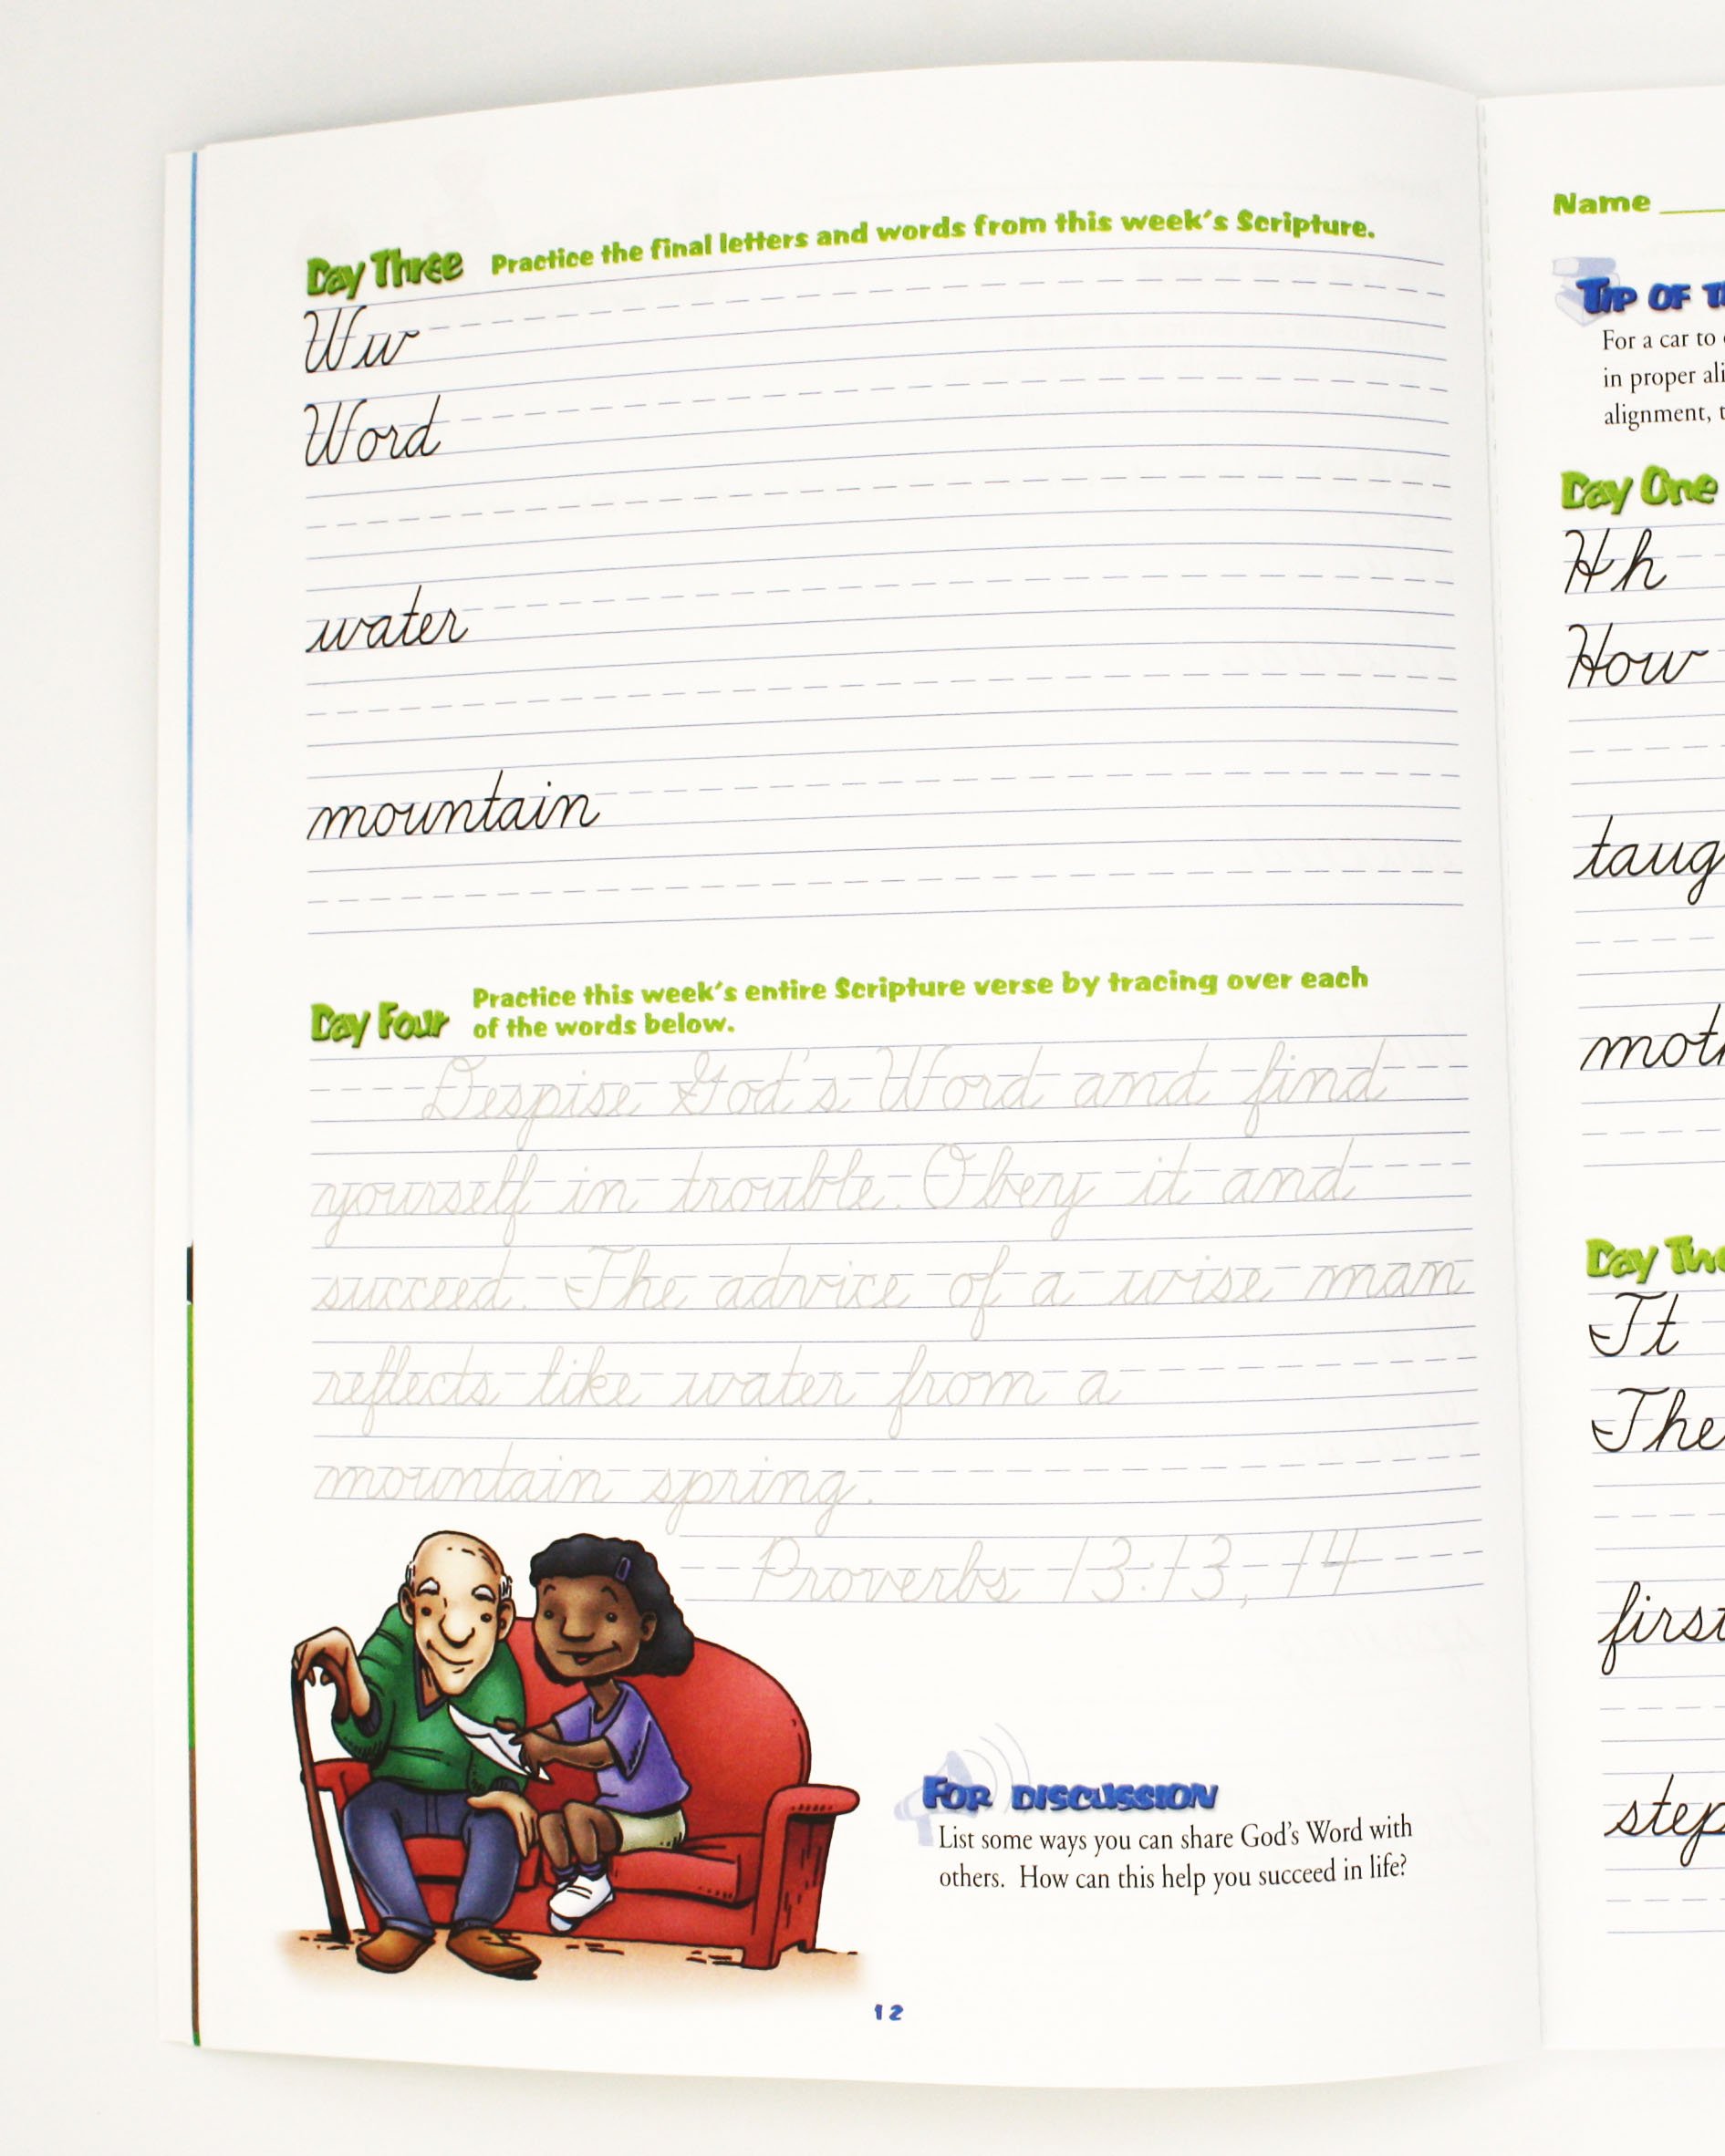 Day Three Practice the final letters and words from this week's Scripture.
Ww
Word
water
mountain
Day Four Practice this week's entire Scripture verse by tracing over each
of the words below.
Despise God's Word and find
yourself in trouble. Obey it and
succeed. The advice of a wise man
reflects like water from a
mountain spring.
Proverbs 13:13, 14
For discussion
List some ways you can share God's Word with
others. How can this help you succeed in life?
12
Name
Tip of
For a car to
in proper
alignment,
Day One
Hh
How
Day
Tt
The
first